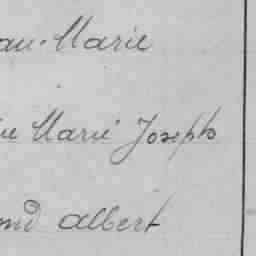 an-Marie
ie Marie Joseph
nd Albert